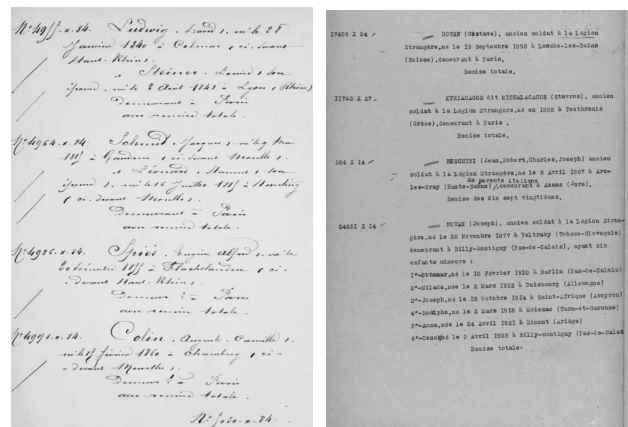 Nº 49 . x. 84. Ludwig, , né le 28
Janvier 1840 à Colmar, ci-devant
Haut-Rhin,
et Steiner, Louise, son
épouse, née le 2 Août 1842 à Lyon, Rhône,
demeurant à Paris
avec remise totale.
Nº 4964. x. 84. Schmitt, Jacques, né le 9 Mai
à , ci-devant Meurthe,
et Léonard, , son
épouse, née le 16 Juillet à
, ci-devant Meurthe,
demeurant à Paris
avec remise totale.
Nº 4986. x. 84. Spies, Eugène Alfred, né le
20 décembre à Flachslanden, ci-
devant Haut-Rhin,
demeurt à Paris
avec remise totale.
Nº 4990. x. 84. Colin, Auguste Camille,
né le février 1860 à , ci-
devant Meurthe,
demeurt à Paris
avec remise totale.
Nº . x. 84.
17409 X 24 ROYAN (Gustave), ancien soldat à la Légion
Etrangère, né le 19 Septembre 1893 à Loèche-les-Bains
(Suisse), demeurant à Paris.
Remise totale.
11723 X 27. KYRIACACOS dit MICHALACACOS (Stavros), ancien
soldat à la Légion Etrangère, né en 1886 à
(Grèce), demeurant à Paris.
Remise totale.
584 X 14 (Jean, Robert, Charles, Joseph) ancien
soldat à la Légion Etrangère, né le 6 Avril 1887 à Arc-
de parents italiens
les-Gray (Haute-Saône), demeurant à (Jura).
Remise des dix sept vingtièmes.
24451 X 14 NOVAK (Joseph), ancien soldat à la Légion Etran-
gère, né le 28 Novembre 1877 à Veltruby (Tchéco-Slovaquie)
demeurant à Billy-Montigny (Pas-de-Calais), ayant six
enfants mineurs :
1°-Ottomar, né le 10 Février 1910 à Barlin (Pas-de-Calais)
2°-Milana, née le 2 Mars 1912 à Duisbourg (Allemagne)
3°-Joseph, né le 18 Octobre 1914 à Saint-Afrique (Aveyron)
4°- , né le 2 Mars 1918 à Moissac (Tarn-et-Garonne)
5°-Anna, née le 24 Avril 1921 à Rimont (Ariège)
6°- né le 2 Avril 1925 à Billy-montigny (Pas-de-Calais
Remise totale.